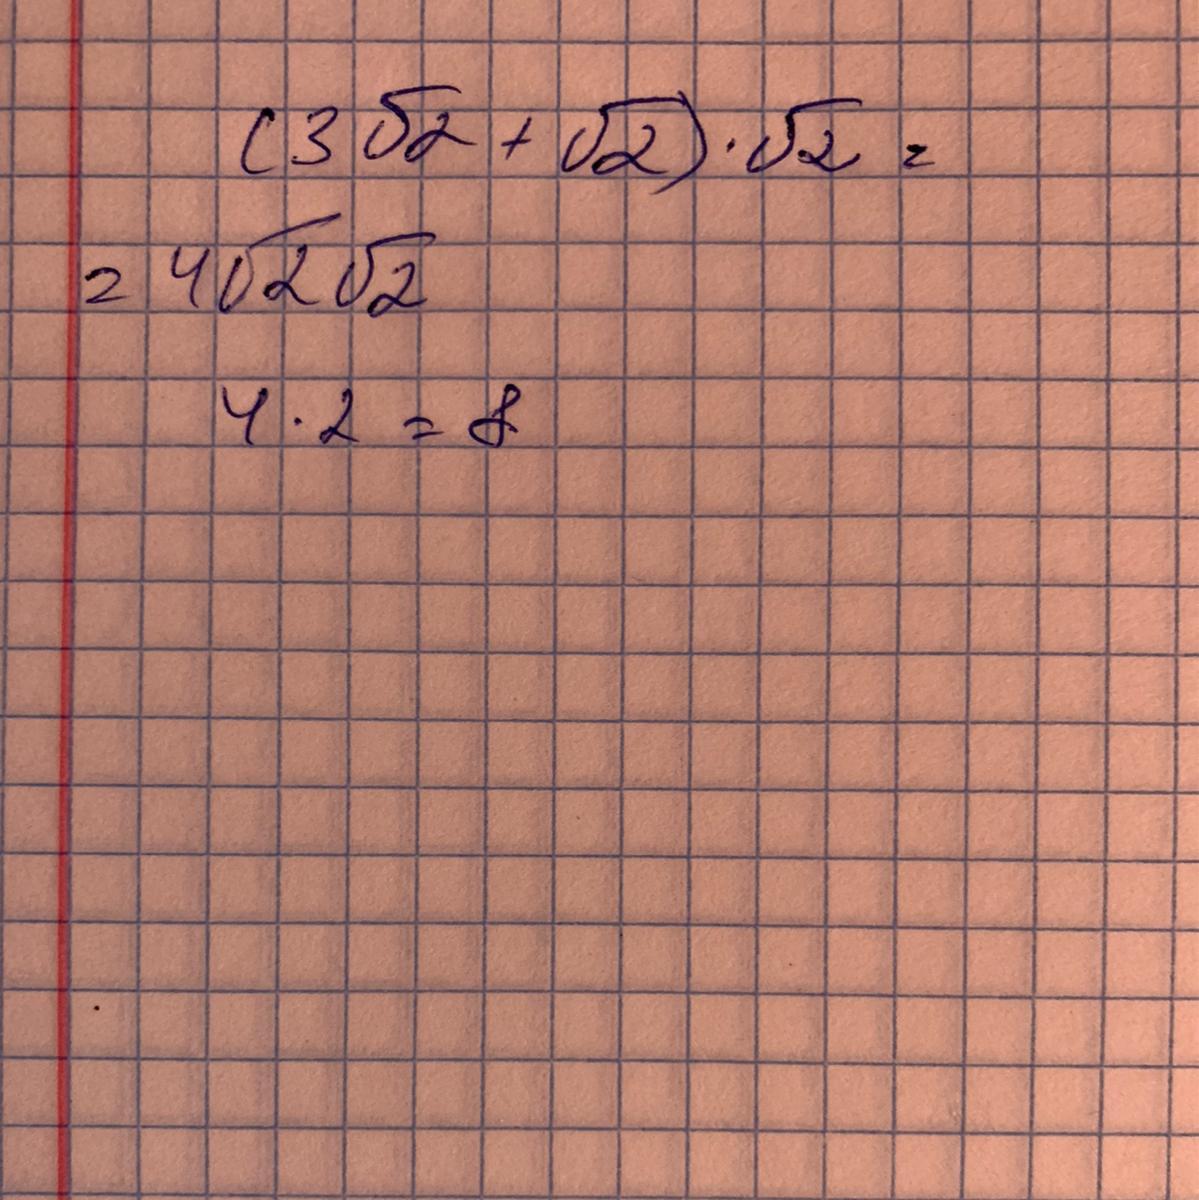 (3√2 + √2) · √2 =
= 4√2√2
4 · 2 = 8